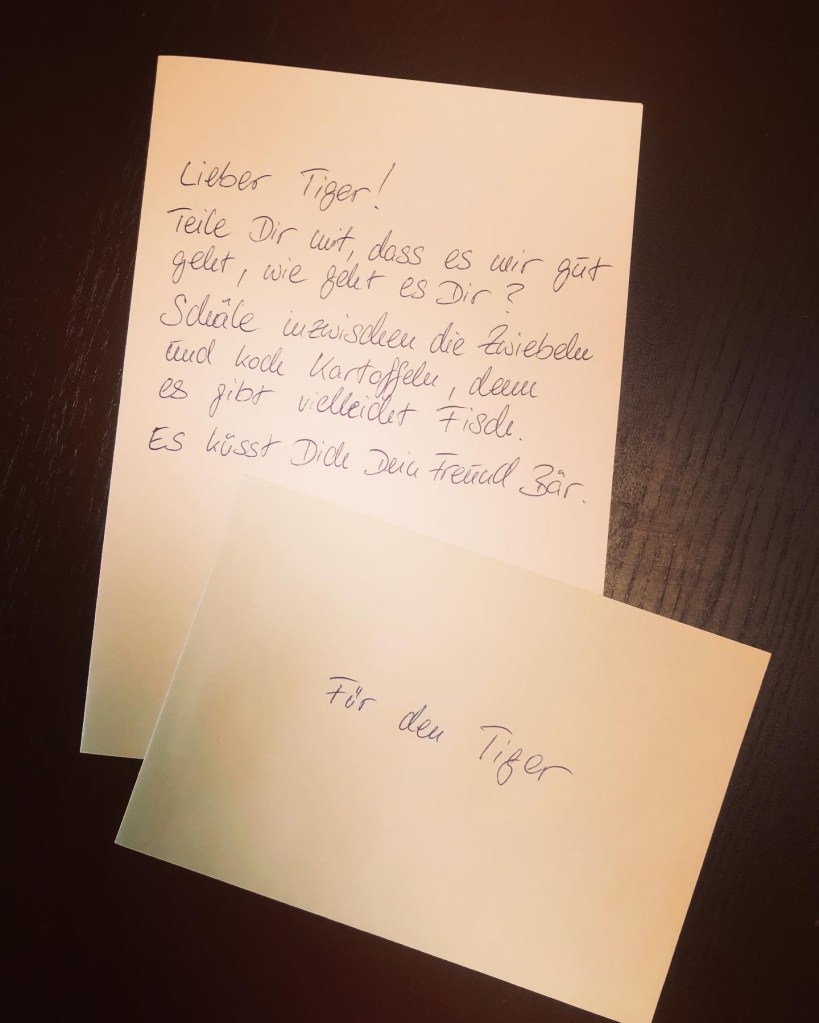 Lieber Tiger!
Teile Dir mit, dass es mir gut
geht, wie geht es Dir?
Schäle inzwischen die Zwiebeln
und koch Kartoffeln, denn
es gibt vielleicht Fisch.
Es küsst Dich Dein Freund Bär.
Für den Tiger